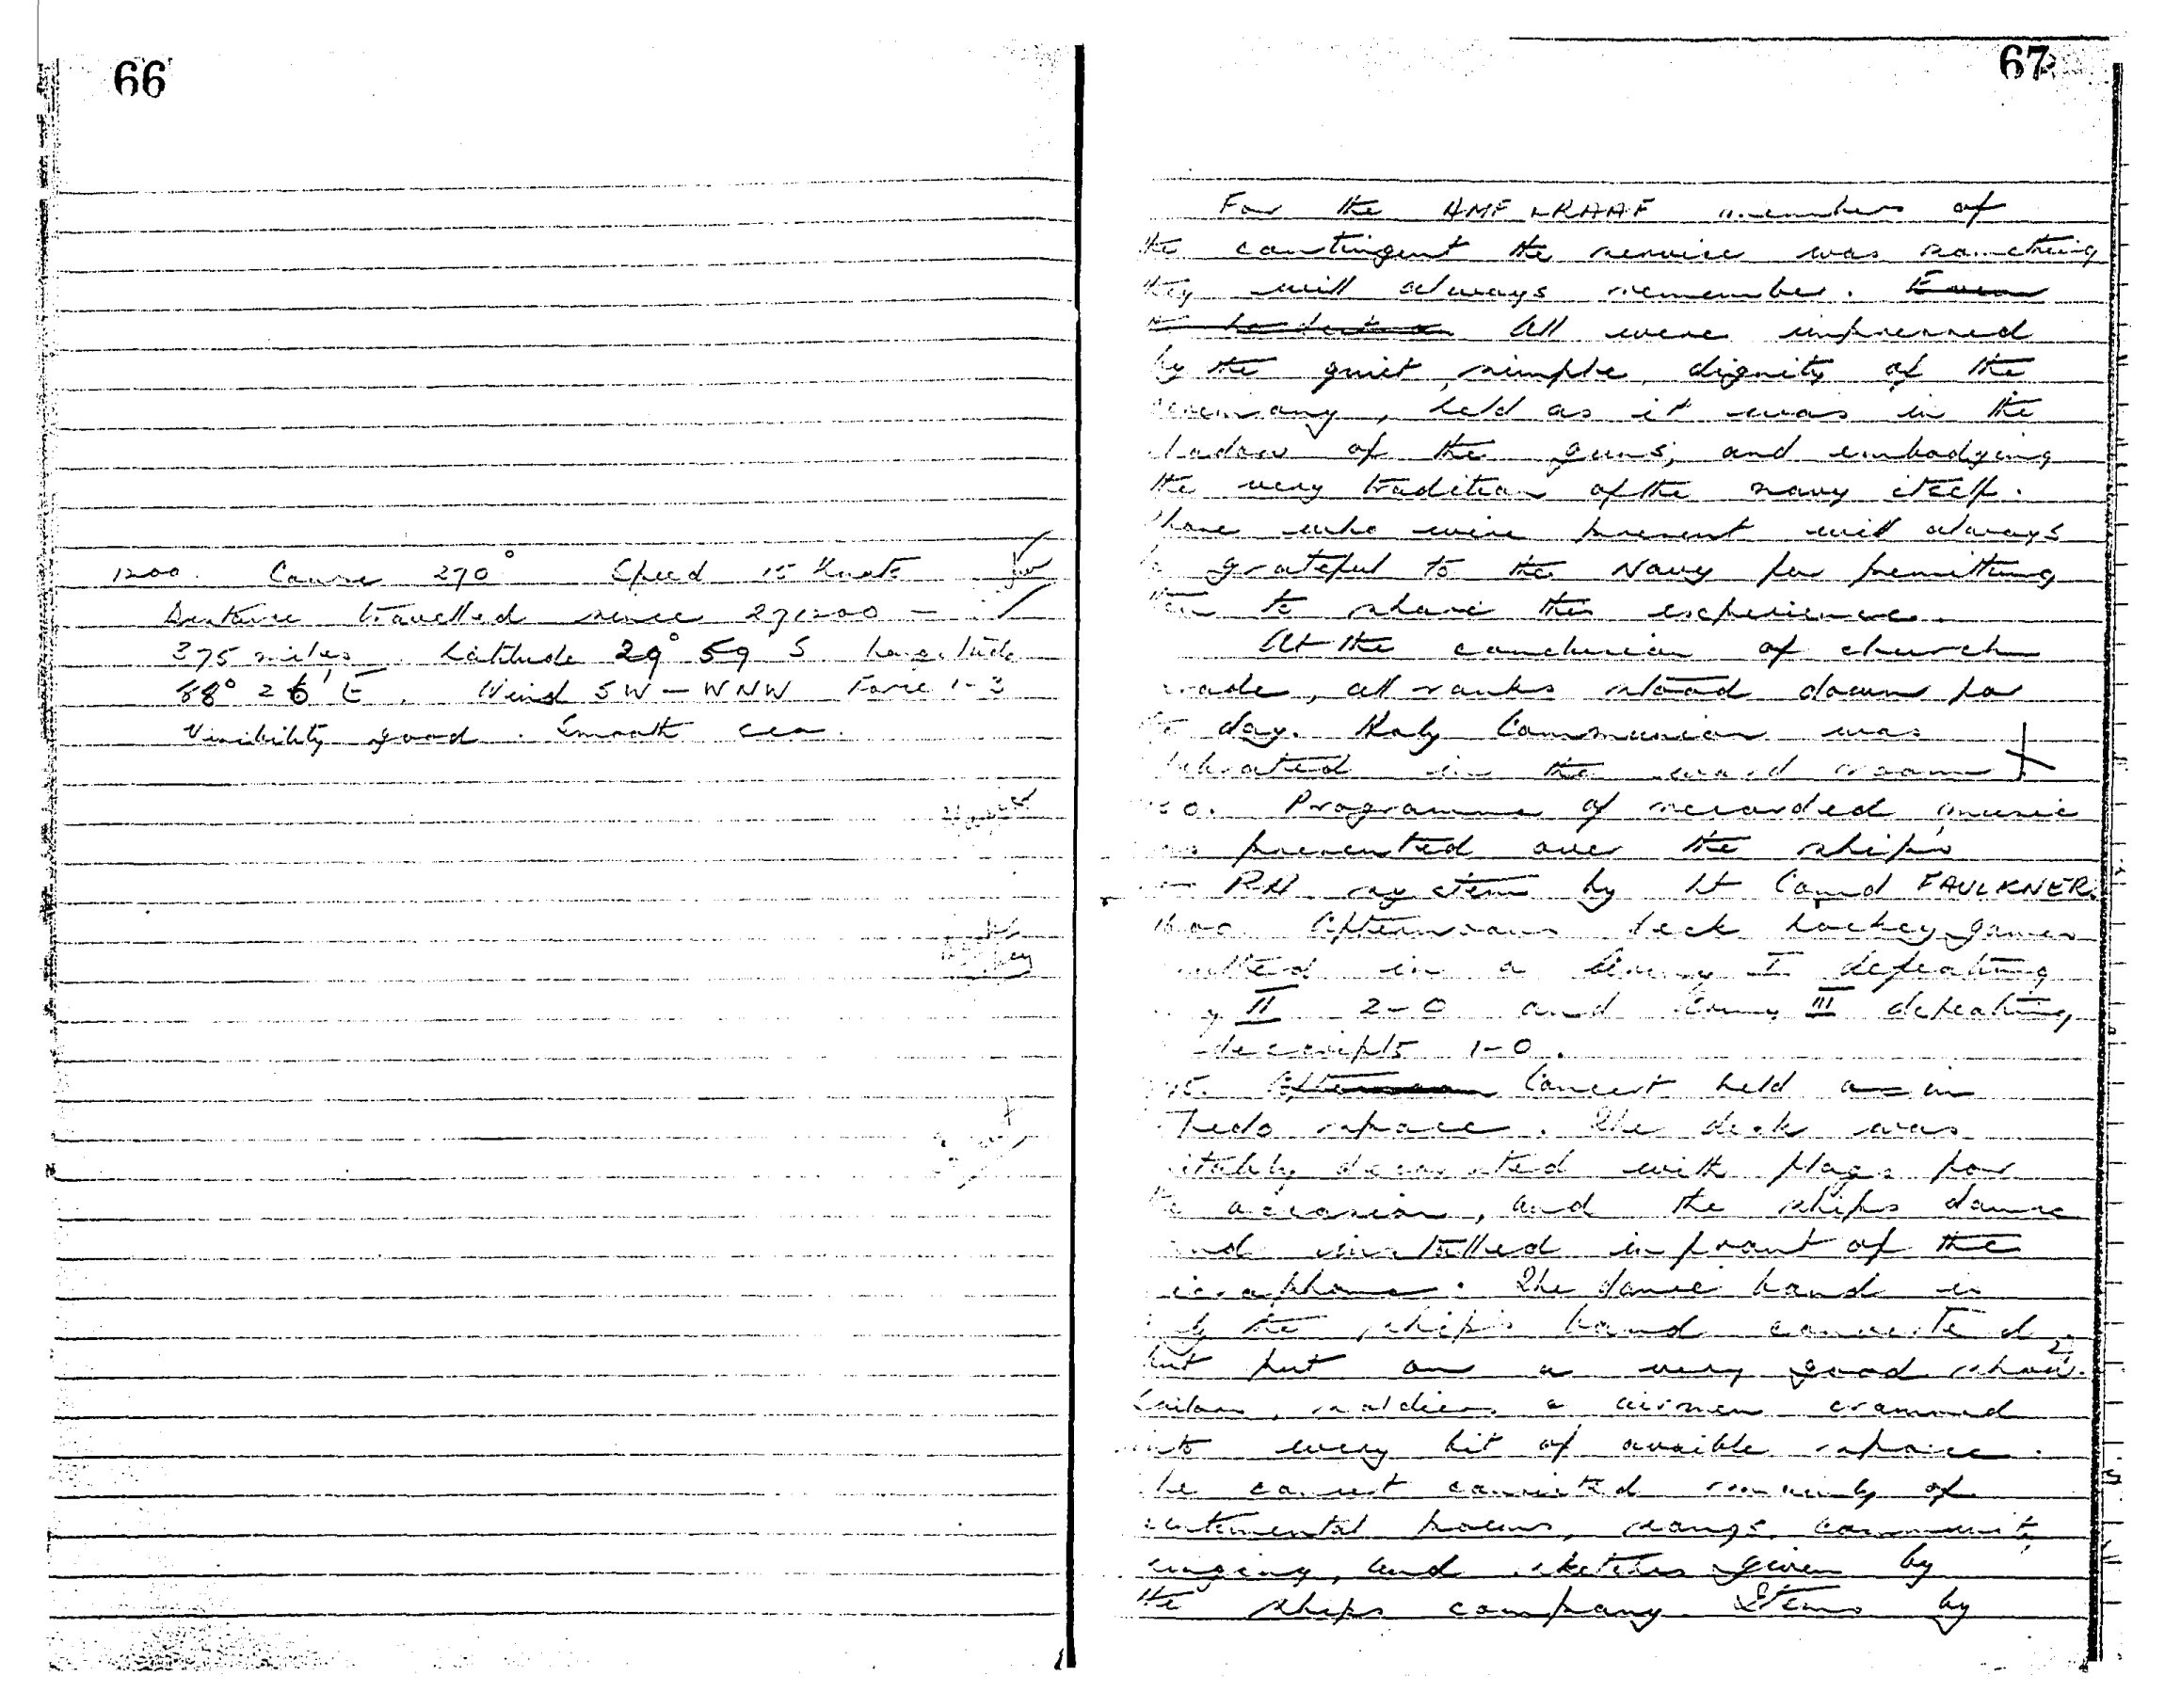 66
1200. Course 270° Speed 15 Knots
Distance travelled since 271200 —
375 miles. Latitude 29° 59 S Longitude
88° 26' E. Wind SW - WNW Force 1-3
Visibility good. Smooth sea.
Hockey
67
For the AMF & RAAF members of
the contingent the service was something
they will always remember. Even
All were impressed
by the quiet, simple, dignity of the
ceremony, held as it was in the
shadow of the guns, and embodying
the very tradition of the navy itself.
Those who were present will always
be grateful to the Navy for permitting
them to share this experience.
At the conclusion of church
parade, all ranks stood down for
the day. Holy Communion was
celebrated in the ward room
Programme of recorded music
was presented over the ship's
PA system by Lt Comd FAULKNER.
1600. Afternoons deck hockey games
resulted in a Army I defeating
Army II 2-0 and Army III defeating
1-0.
Afternoon Concert held as in
Torpedo space. The deck was
suitably decorated with flags for
the occasion, and the ships dance
band installed in front of the
microphone. The dance band is
only the ship's band converted,
but put on a very good show.
Sailors, soldiers & airmen crammed
into every bit of availble space.
The concert consisted mainly of
sentemental poems, songs, community
singing, and sketches given by
the ships company. Items by